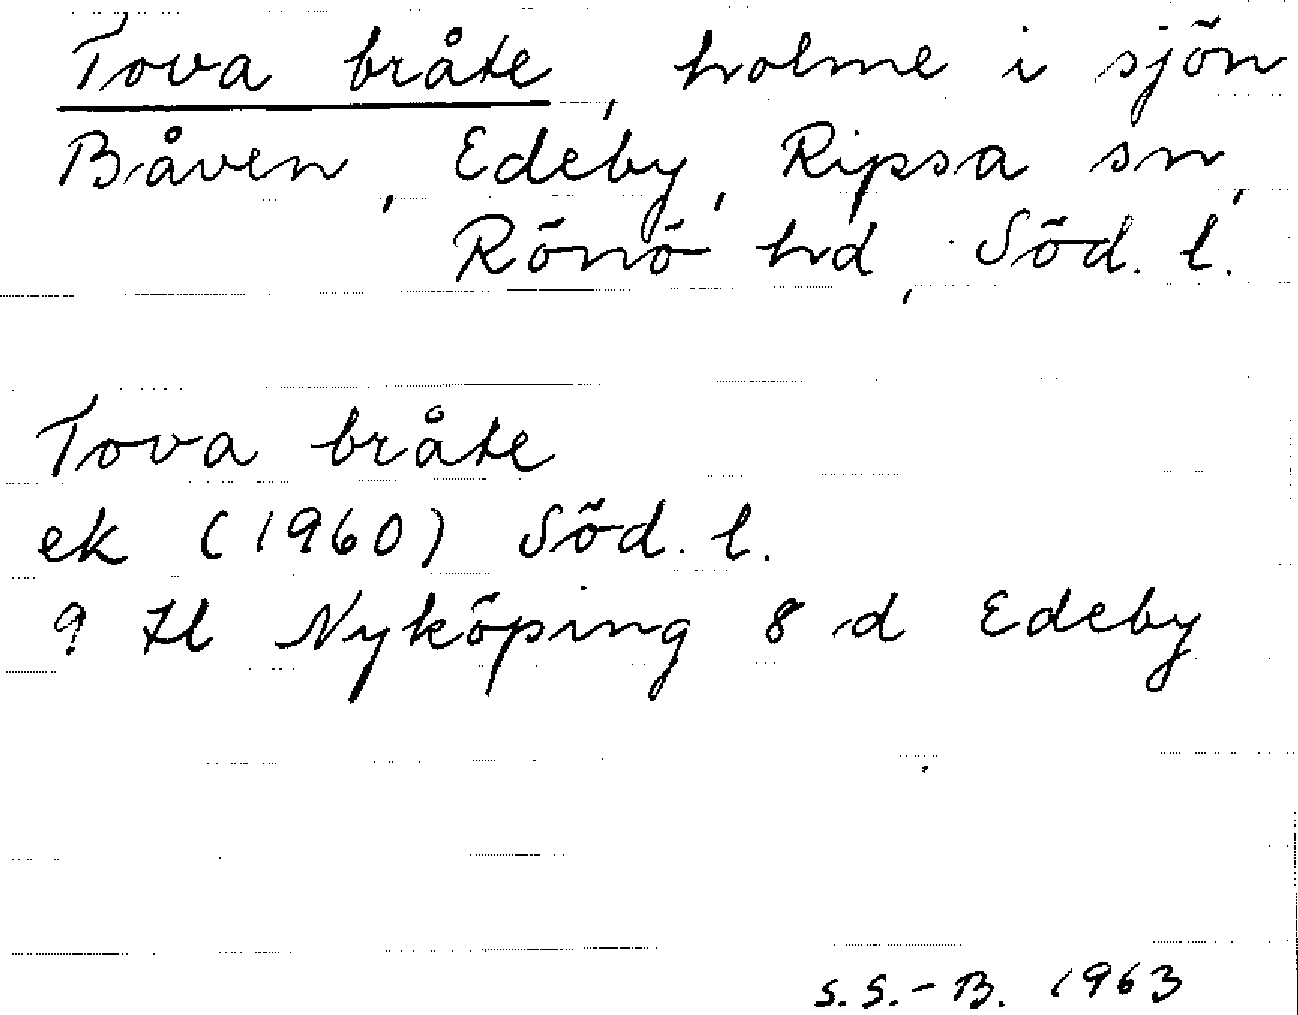 Tova bråte, holme i sjön
Båven, Edeby, Ripsa sn,
Rönö hd, Söd. l.
Tova bråte
ek (1960) Söd. l.
9 H Nyköping 8 d Edeby
S. S.-B. 1963